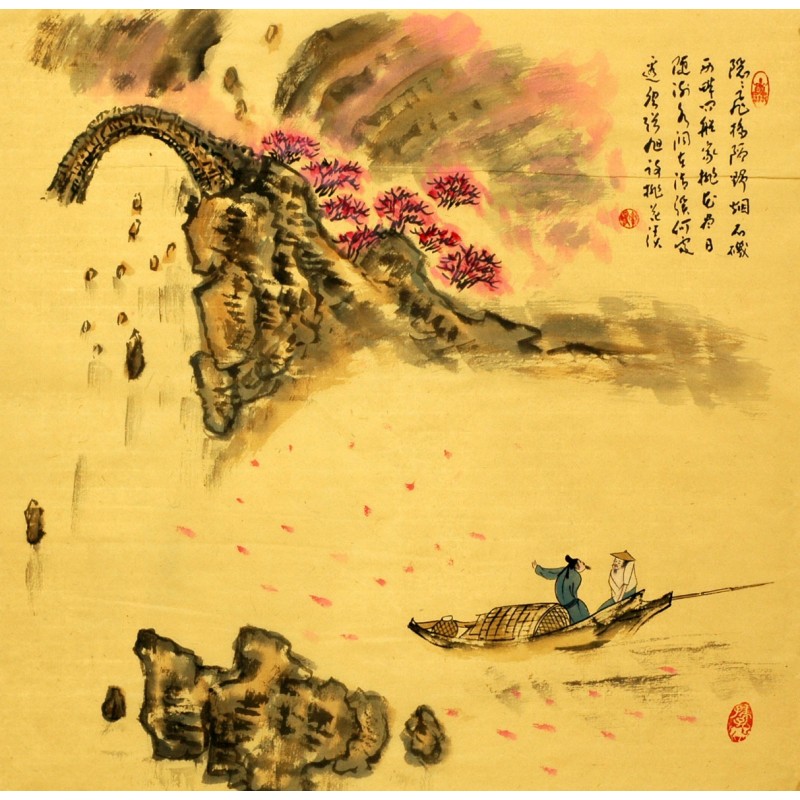 隐〻飛橋隔野烟石磯
西畔问船家桃花尽日
随流水洞在清溪何處
邊 唐張旭詩桃花溪